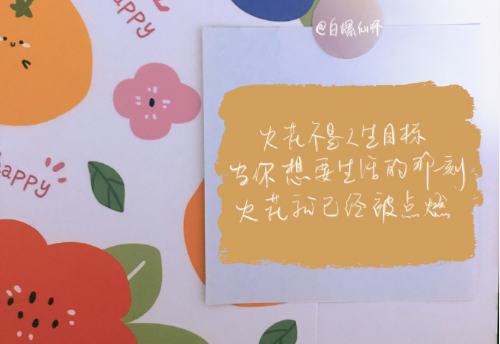 @白嫖仙怀
happy
火花不是人生目标
当你想要生活的那刻
火花就已经被点燃
happy